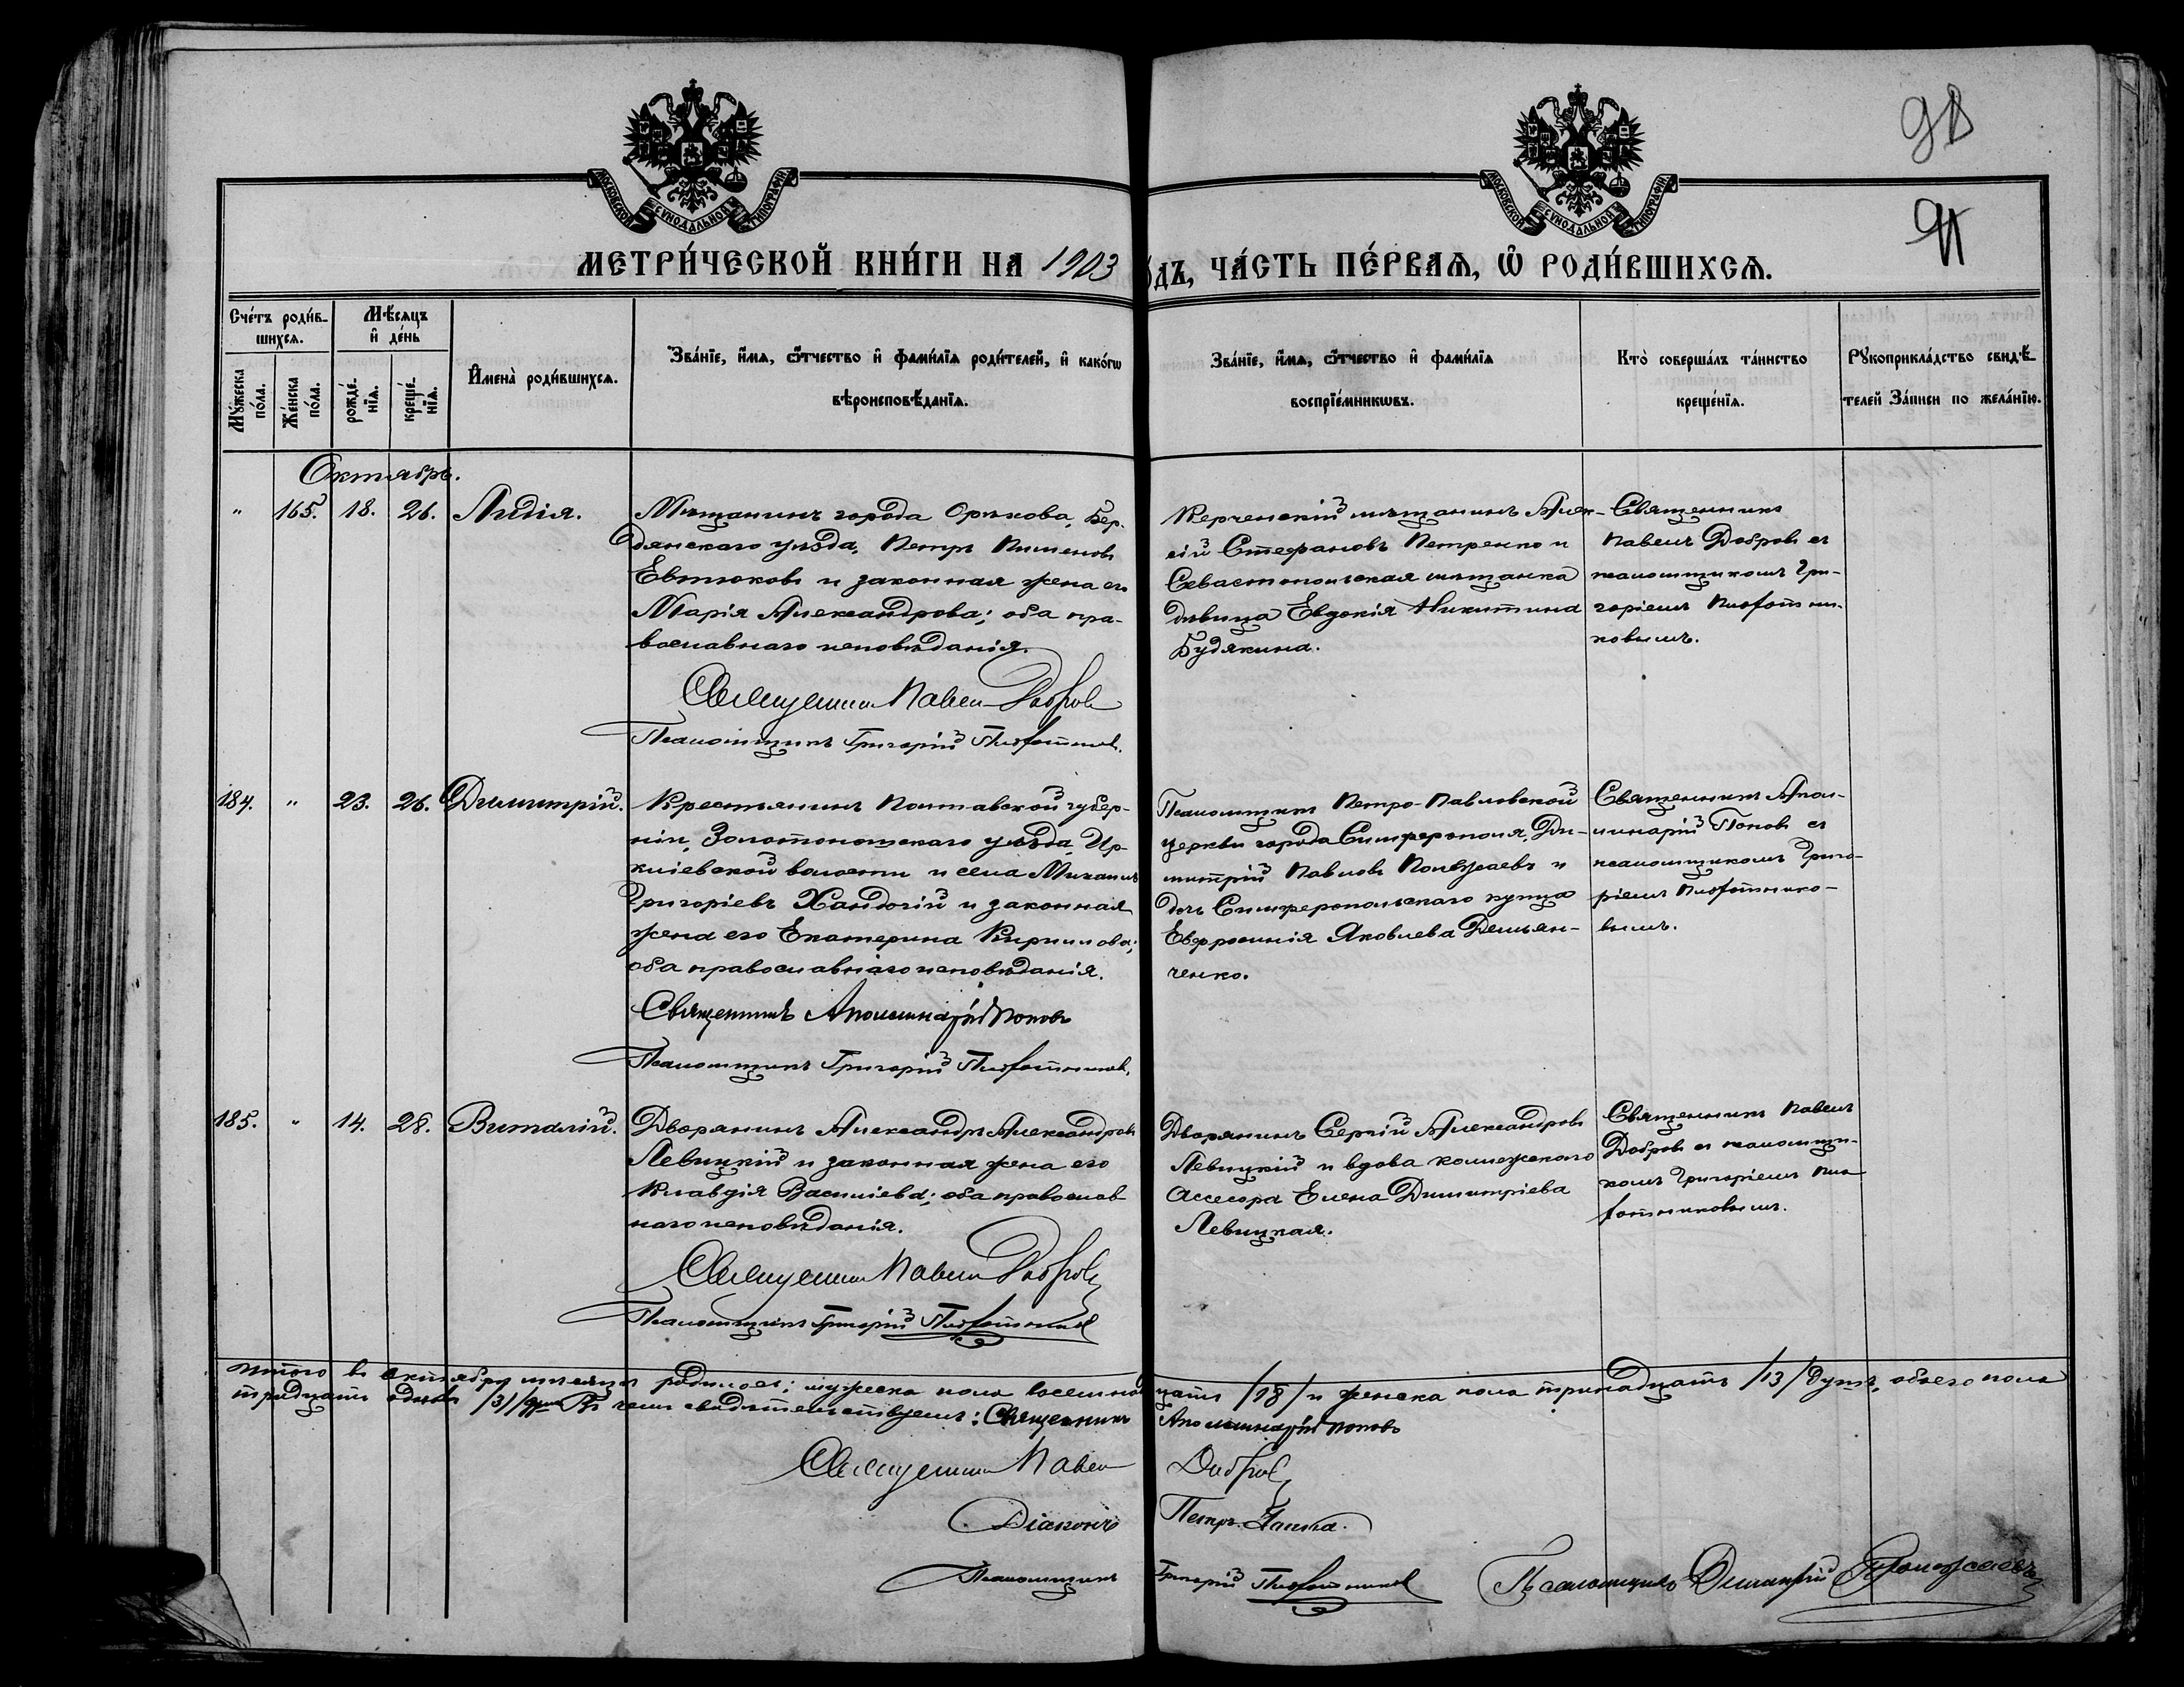 98
МОСКОВСКОЙ СѴНОДАЛЬНОЙ ТИПОГРАФІИ
МОСКОВСКОЙ СѴНОДАЛЬНОЙ ТИПОГРАФІИ
МЕТРИ́ЧЕСКОЙ КНИ́ГИ НА 1903
ДЪ, ЧА́СТЬ ПЕ́РВАѦ, Ѡ РОДИ́ВШИХСѦ.
Сче́тъ роди́в-
шихсѧ.
Мѣ́сѧцъ
и҆ де́нь
Мꙋ́жеска
по́ла.
Же́нска
по́ла.
рожде́-
нїѧ.
креще́-
нїѧ.
И҆мена̀ роди́вшихсѧ.
Зва́нїе, и҆́мѧ, ѻ҆́тчество и҆ фамі́лїѧ роди́телей, и҆ како́гѡ
вѣроисповѣ́данїѧ.
Зва́нїе, и҆́мѧ, ѻ҆́тчество и҆ фамі́лїѧ
воспрїе́мникѡвъ.
Кто̀ соверша́лъ та́инство
креще́нїѧ.
Рꙋкоприкла́дство свидѣ́-
телей За́писи по жела́нїю.
Октябрь.
" 165. 18. 26. Лидія.
Мѣщанинъ города Орѣхова, Бер-
дянскаго уѣзда, Петръ Пименовъ
Евтюковъ и законная жена его
Марія Александрова; оба пра-
вославнаго исповѣданія.
Священникъ Павелъ Добровъ
Псаломщикъ Григорій
Керченскій мѣщанинъ Алек-
сій Стефановъ Петренко и
Севастопольская мѣщанка
дѣвица Евдокія Никитина
Будякина.
Священникъ
Павелъ Добровъ съ
псаломщикомъ Гри-
горіемъ
ковымъ.
184. " 23. 26. Димитрій.
Крестьянинъ Полтавской губер-
ніи, Золотоношскаго уѣзда, Ир-
клѣевской волости и села Михаилъ
Григоріевъ Хандогій и законная
жена его Екатерина Кириллова;
оба православнаго исповѣданія.
Священникъ Аполлинарій Поповъ
Псаломщикъ Григорій
Псаломщикъ Петро-Павловской
церкви города Симферополя, Ди-
митрій Павловъ Полежаевъ и
дочь Симферопольскаго купца
Евфросинія Яковлева Демьян-
ченко.
Священникъ Апол-
линарій Поповъ съ
псаломщикомъ Григо-
ріемъ
вымъ.
185. " 14. 28. Виталій.
Дворянинъ Александръ Александровъ
Левицкій и законная жена его
Клавдія Василіева; оба православ-
наго исповѣданія.
Священникъ Павелъ Добровъ
Псаломщикъ Григорій
Дворянинъ Сергій Александровъ
Левицкій и вдова коллежскаго
Ассесора Елена Димитріева
Левицкая.
Священникъ Павелъ
Добровъ съ псаломщи-
комъ Григоріемъ
Итого въ октябрѣ мѣсяцѣ родилось: мужеска пола восемнадцать /18/ и женска пола тринадцать /13/ душъ, обоего пола
тридцать одна /31/ душа. Въ чемъ свидѣтельствуемъ: Священникъ Аполлинарій Поповъ
Священникъ Павелъ Добровъ
Діаконъ Петръ
Псаломщикъ Григорій
Псаломщикъ Димитрій Полежаевъ